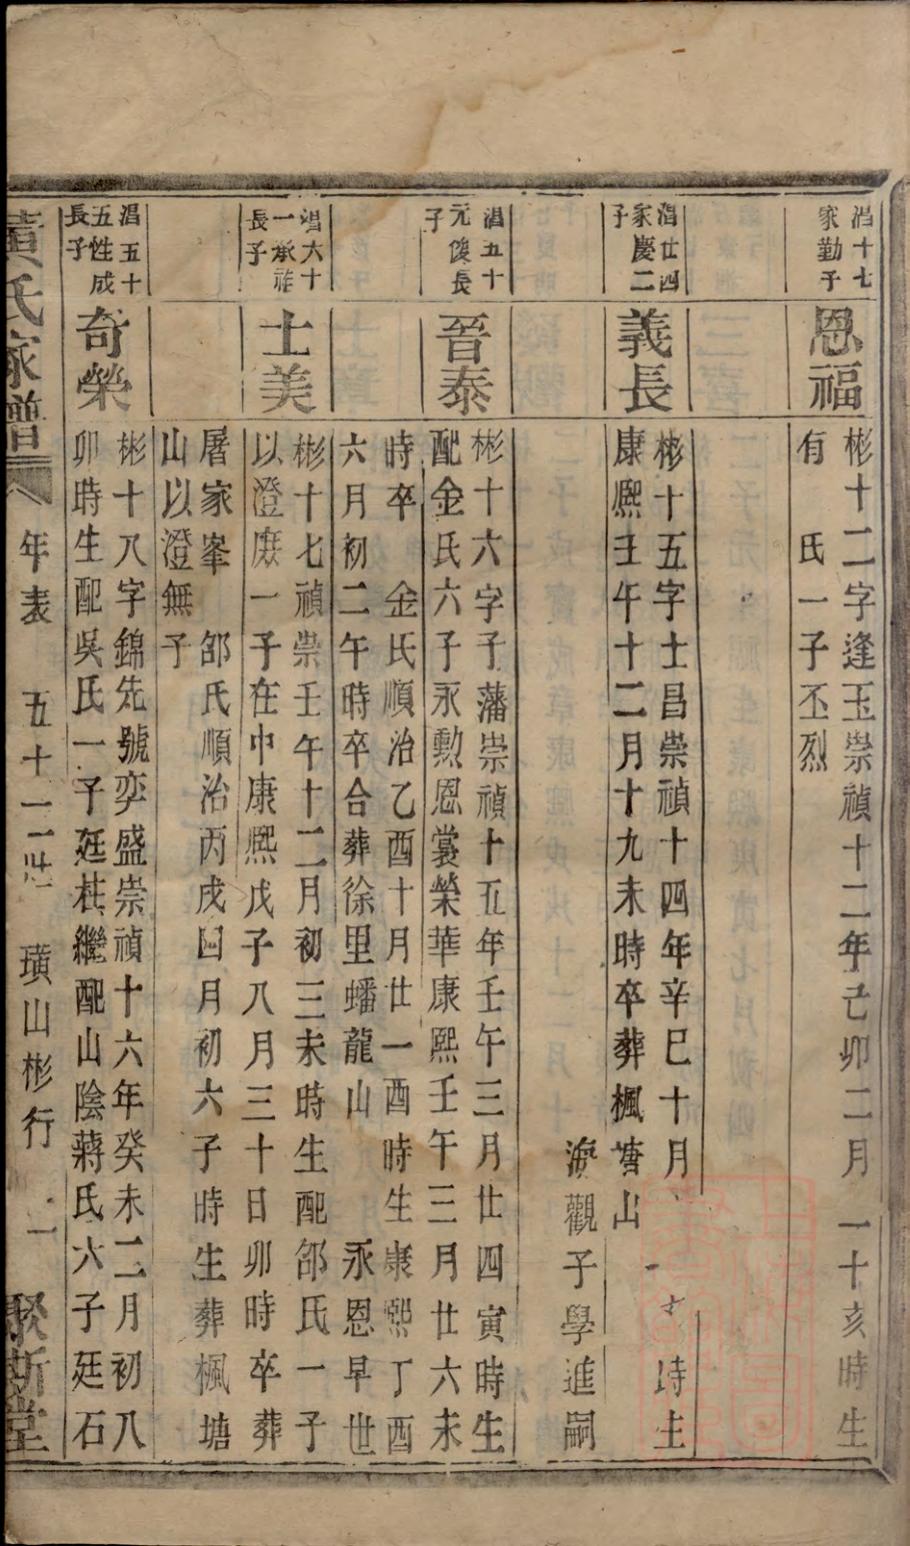 淐十七
家勤子
恩福
彬十二字逢玉崇禎十二年己卯二月一十亥時生
有 氏一子丕烈
淐廿四
家慶二
子
義長
彬十五字士昌崇禎十四年辛巳十月 時生
康熙壬午十二月十九未時卒葬楓塘山
海觀子學進嗣
淐五十
元俊長
子
晉泰
彬十六字子藩崇禎十五年壬午三月廿四寅時生
配金氏六子永勲恩裳榮華康熙壬午三月廿六未
時卒 金氏順治乙酉十月廿一酉時生康熙丁酉
六月初二午時卒合葬徐里蟠龍山 永恩早世
淐六十
一承祚
長子
士美
彬十七禎崇壬午十二月初三未時生配邵氏一子
以澄庶一子在中康熙戊子八月三十日卯時卒葬
屠家峯 邵氏順治丙戌四月初六子時生葬楓塘
山以澄無子
淐五十
五性成
長子
奇榮
彬十八字錦先號奕盛崇禎十六年癸未二月初八
卯時生配吳氏一子廷栱繼配山陰蔣氏六子廷石
黃氏家譜 年表 五十一世 璜山彬行 一 聚斯堂